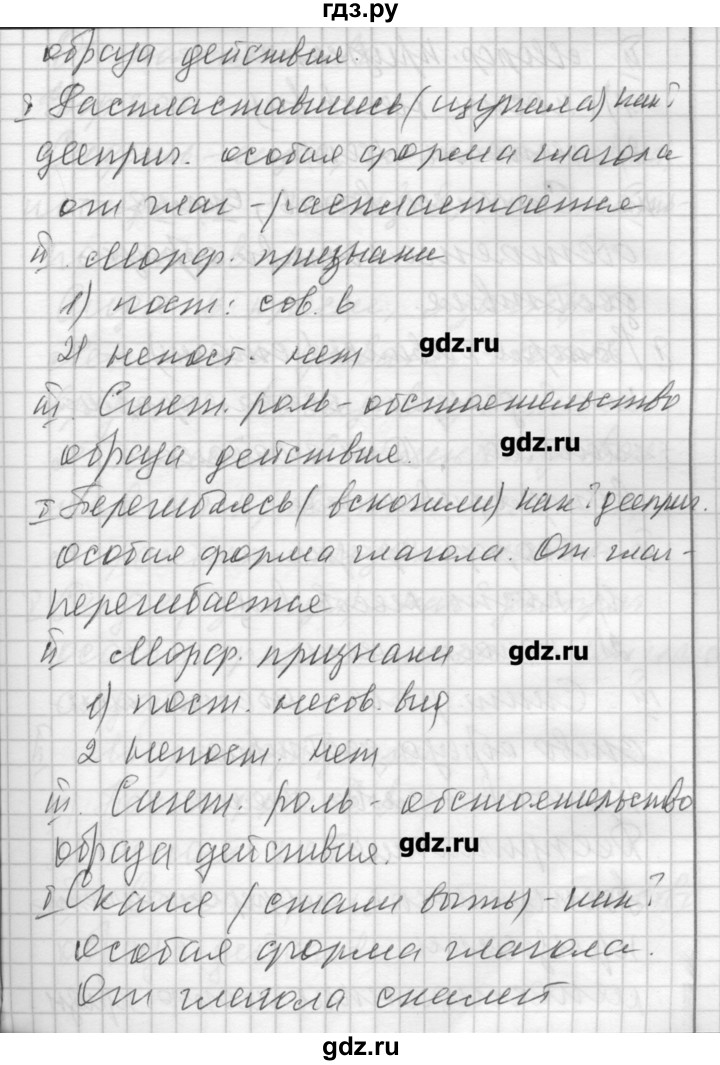 гдз.ру
образа действия.
I Распластавшись (щупала) как?
дееприч. особая форма глагола
от глаг - распластается
II. Морф. признаки
1) пост: сов. в
2) непост. нет
gdz.ru
III. Синт. роль - обстоятельство
образа действия.
gdz.ru
I Перегибаясь (вскочили) как? дееприч.
особая форма глагола. От глаг -
перегибается
II Морф. признаки
gdz.ru
1) пост. несов. вид
2 непост. нет
III. Синт. роль - обстоятельство
образа действия.
gdz.ru
I Скаля (стали выть) - как?
особая форма глагола.
От глагола скалит
gdz.ru